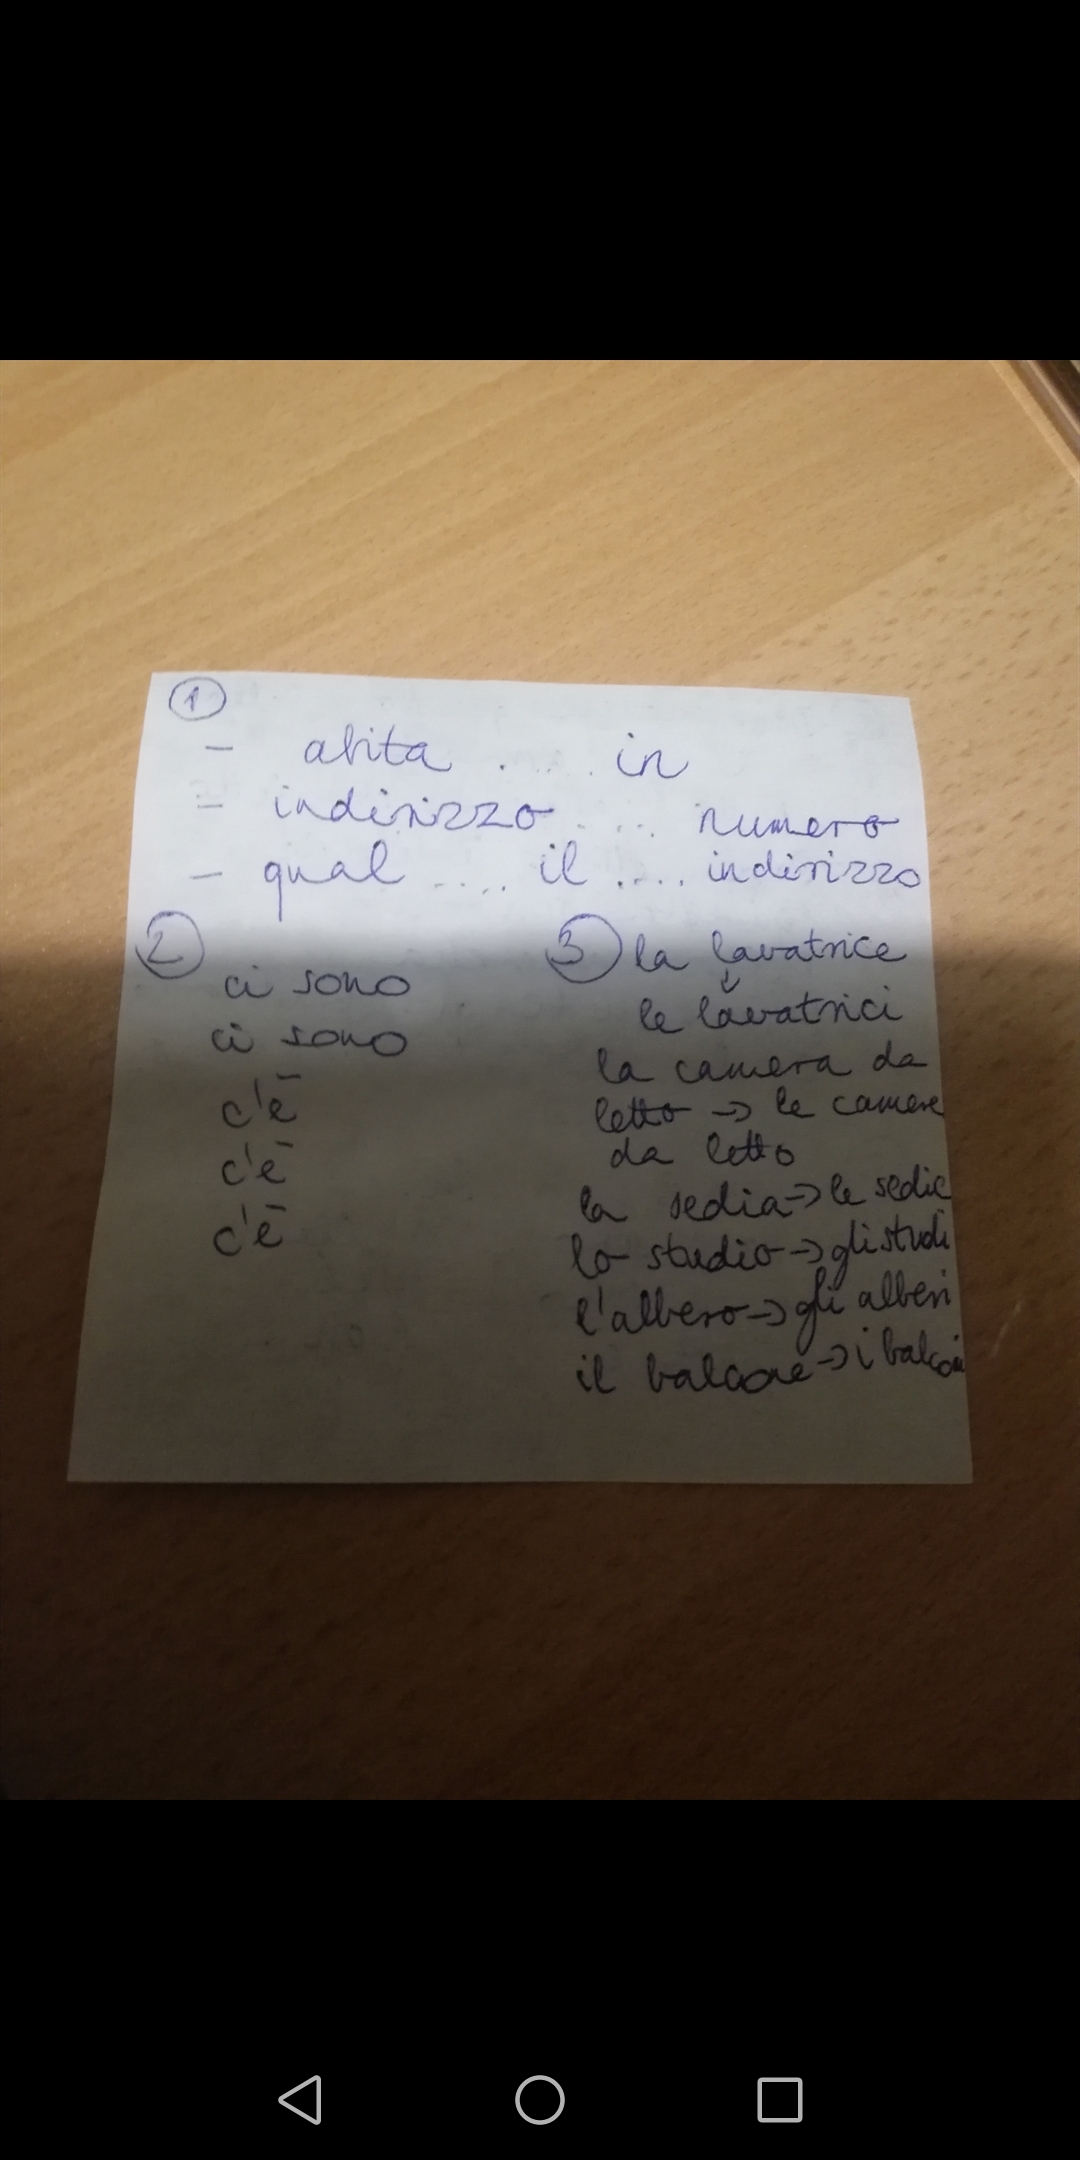 1
- abita .... in
- indirizzo .... numero
- qual .... il .... indirizzo
2
ci sono
ci sono
c'è
c'è
c'è
3 la lavatrice
le lavatrici
la camera da
letto → le camere
da letto
la sedia → le sedie
lo studio → gli studi
l'albero → gli alberi
il balcone → i balconi